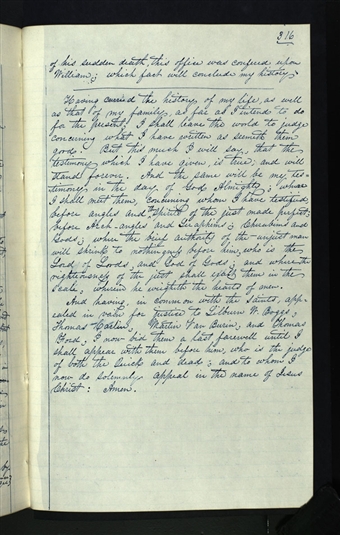 316
of his sudden death, this office was confered upon
William; which fact will conclude my history.
Having carried the history of my life, as well
as that of my family, as far as I intend to do
for the present, I shall leave the world to judge
concerning what I have written as seemeth them
good. But this much I will say, that the
testimony which I have given is true, and will
stand forever. And the same will be my tes-
timony in the day of God Almighty; when
I shall meet them, concerning whom I have testified
before angels and the spirits of the just made perfect;
before Arch-angles and Seraphims; Cherubims and
Gods; where the brief authority of the unjust man
will shrink to nothingness before him, who is the
Lord of Lords, and God of Gods; and where the
righteousness of the just shall exalt them in the
scale, wherein he weigheth the hearts of men.
And having, in common with the Saints, app-
ealed in vain for justice to Lilburn W. Boggs,
Thomas Carlin, Martin Van Buren, and Thomas
Ford, I now bid them a last farewell until I
shall appear with them before him, who is the judge
of both the Quick and dead; and to whom I
now do solemnly appeal in the name of Jesus
Christ: Amen.